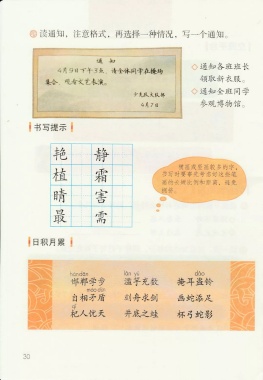 读通知，注意格式，再选择一种情况，写一个通知。
通知
4月9日下午3点，请全体同学在操场
集合，观看文艺表演。
少先队大队部
4月7日
◇ 通知各班班长
领取新衣服。
◇ 通知全班同学
参观博物馆。
书写提示
艳 静
植 霜
晴 害
最 需
日积月累
hán dān
邯郸学步
làn yú
滥竽充数
dào
掩耳盗铃
máo dùn
自相矛盾
刻舟求剑
画蛇添足
qǐ
杞人忧天
井底之蛙
杯弓蛇影
30